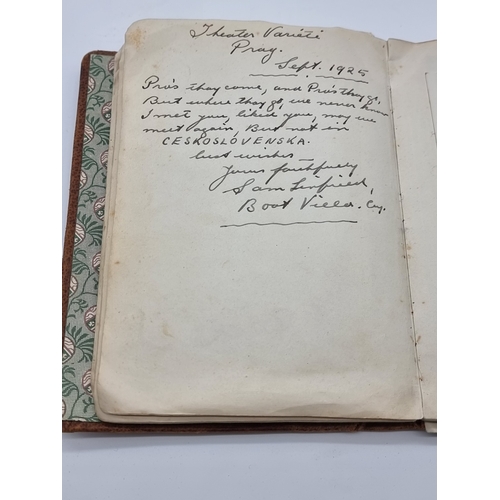 Theater Varieté
Prag.
Sept. 1925
Pro's they come, and Pro's they go,
But where they go, we never know
I met you, liked you, may we
meet again, But not in
CESKOSLOVENSKA.
Best wishes —
Yours faithfully
Sam
Boot Villa. Coy.